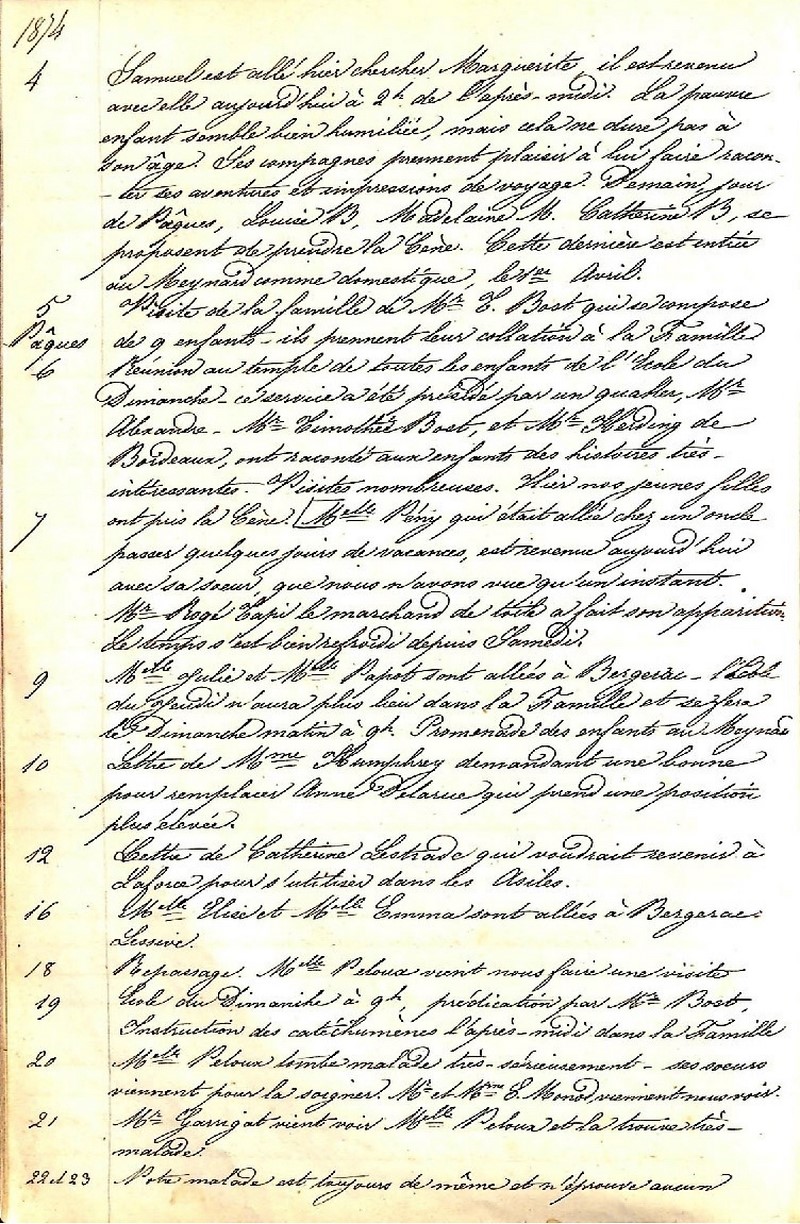 1874
4 Samuel est allé hier chercher Marguerite, il est revenu
avec elle aujourd'hui à 2h de l'après-midi. La pauvre
enfant semble bien humiliée, mais cela ne dure pas à
son âge. Ses compagnes prennent plaisir à lui faire racon-
-ter ses aventures et impressions de voyage. Demain, jour
de Pâques, Louise B, Madelaine M. Catherine B, se
proposent de prendre la Cène. Cette dernière est entrée
au Meynard comme domestique, le 1er Avril.
5 Pâques Visite de la famille de Mr E. Bost qui se compose
de 9 enfants - ils prennent leur collation à la Famille
6 Réunion au temple de toutes les enfants de l'Ecole du
Dimanche - ce service a été présidé par un quaker, Mr
Alexandre - Mr Timothée Bost, et Mr Herding de
Bordeaux, ont raconté aux enfants des histoires très-
intéressantes. Visites nombreuses. Hier nos jeunes filles
7 ont pris la Cène. Melle Pény qui était allée chez un oncle
passer quelques jours de vacances, est revenue aujourd'hui
avec sa soeur, que nous n'avons vue qu'un instant.
Mr Rogé Tapi le marchand de toile a fait son apparition.
Le temps s'est bien refroidi depuis Samedi.
9 Melle Julie et Melle Papot sont allées à Bergerac - l'Ecole
du Jeudi n'aura plus lieu dans la Famille et se fera
le Dimanche matin à 9h. Promenade des enfants au Meynard
10 Lettre de Mme Humphrey demandant une bonne
pour remplacer Anne Delarue qui prend une position
plus élevée.
12 Lettre de Catherine Lestrade qui voudrait revenir à
Laforce pour s'utiliser dans les Asiles.
16 Melle Elise et Melle Emma sont allées à Bergerac.
Lessive.
18 Repassage. Melle Peloux vient nous faire une visite
19 Ecole du Dimanche à 9h, prédication par Mr Bost,
Instruction des catéchumènes l'après-midi dans la Famille
20 Melle Peloux tombe malade très-sérieusement - ses soeurs
viennent pour la soigner. Mr et Mme E. Monod viennent nous voir.
21 Mr Garrigat vient voir Melle Peloux et la trouve très-
malade.
22 et 23 Notre malade est toujours de même et n'éprouve aucun